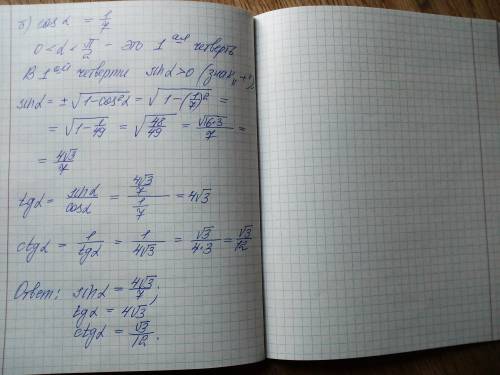 б) cos α = 1/7
0 < α < π/2 - это 1 ая четверть
В 1 ой четверти sin α > 0 (знак „+")
sin α = ± √(1 - cos² α) = √(1 - (1/7)²) =
= √(1 - 1/49) = √(48/49) = √(16·3)/7 =
= 4√3/7
tg α = sin α/cos α = (4√3/7)/(1/7) = 4√3
ctg α = 1/tg α = 1/(4√3) = √3/(4·3) = √3/12
Ответ: sin α = 4√3/7;
tg α = 4√3;
ctg α = √3/12.